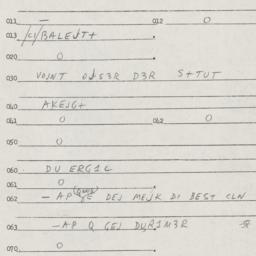 011 — 012 0
013 /c/BALEJT+
020 0
030 VOJNT OJS3R D3R S+TUT
040 AKEJG+
061 0 062 0
050 0
060 DU ERG1C
061 0
062 — AP DEJ MEJK DI BEST CLN
063 —AP Q GEJ DUR1M3R
070 0